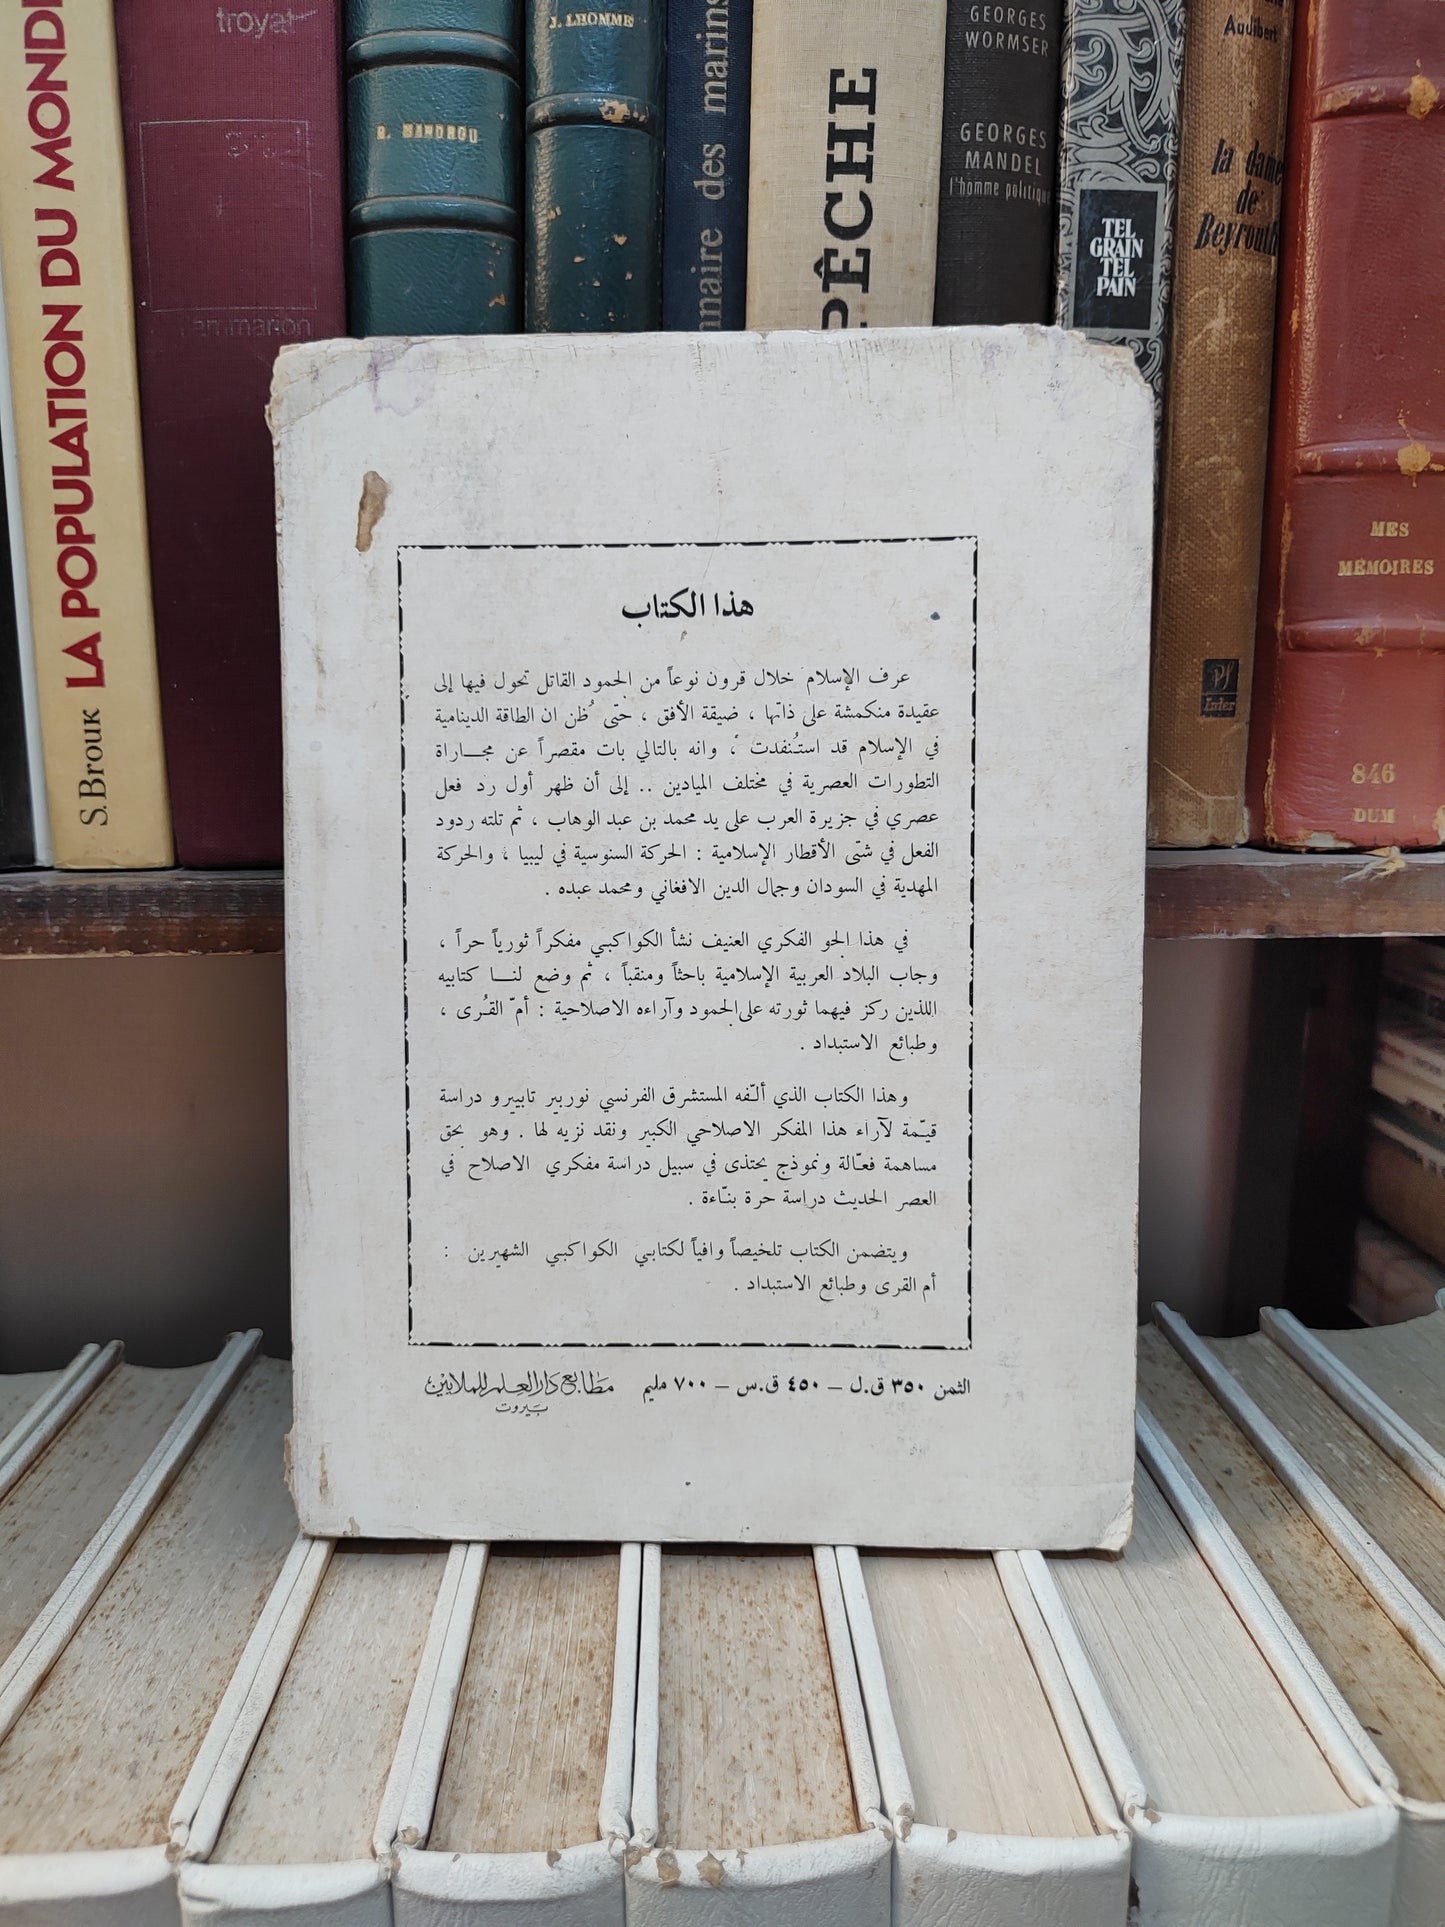 LA POPULATION DU MONDE
S. Brouk
troyat
R. MANDROU
J. LHOMME
nnaire des marins
PÊCHE
GEORGES
WORMSER
GEORGES
MANDEL
l'homme politique
TEL
GRAIN
TEL
PAIN
Audibert
la dame
de
Beyrouth
Inter
MES
MÉMOIRES
846
DUM
هذا الكتاب
عرف الإسلام خلال قرون نوعاً من الجمود القاتل تحول فيها إلى
عقيدة منكمشة على ذاتها ، ضيقة الأفق ، حتى ُظن ان الطاقة الدينامية
في الإسلام قد استُنفدت ، وانه بالتالي بات مقصراً عن مجـــاراة
التطورات العصرية في مختلف الميادين .. إلى أن ظهر أول رد فعل
عصري في جزيرة العرب على يد محمد بن عبد الوهاب ، ثم تلته ردود
الفعل في شتى الأقطار الإسلامية : الحركة السنوسية في ليبيا ، والحركة
المهدية في السودان وجمال الدين الافغاني ومحمد عبده .
في هذا الجو الفكري العنيف نشأ الكواكبـي مفكراً ثورياً حراً ،
وجاب البلاد العربية الإسلامية باحثاً ومنقباً ، ثم وضع لنـــا كتابيه
اللذين ركز فيهما ثورته على الجمود وآراءه الاصلاحية : أمّ القُرى ،
وطبائع الاستبداد .
وهذا الكتاب الذي ألّفه المستشرق الفرنسي نوربير تابييرو دراسة
قيّمة لآراء هذا المفكر الاصلاحي الكبير ونقد نزيه لها . وهو بحق
مساهمة فعّالة ونموذج يحتذى في سبيل دراسة مفكري الاصلاح في
العصر الحديث دراسة حرة بنّاءة .
ويتضمن الكتاب تلخيصاً وافياً لكتابـي الكواكبـي الشهيرين :
أم القرى وطبائع الاستبداد .
الثمن ٣٥٠ ق.ل – ٤٥٠ ق.س – ٧٠٠ مليم
مطابع دار العلم للملايين
بيروت